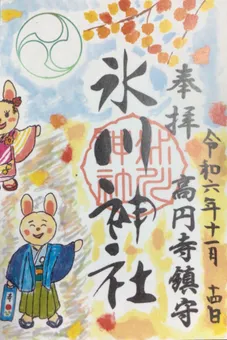 奉拝
高円寺鎮守
氷川神社
令和六年十一月十四日